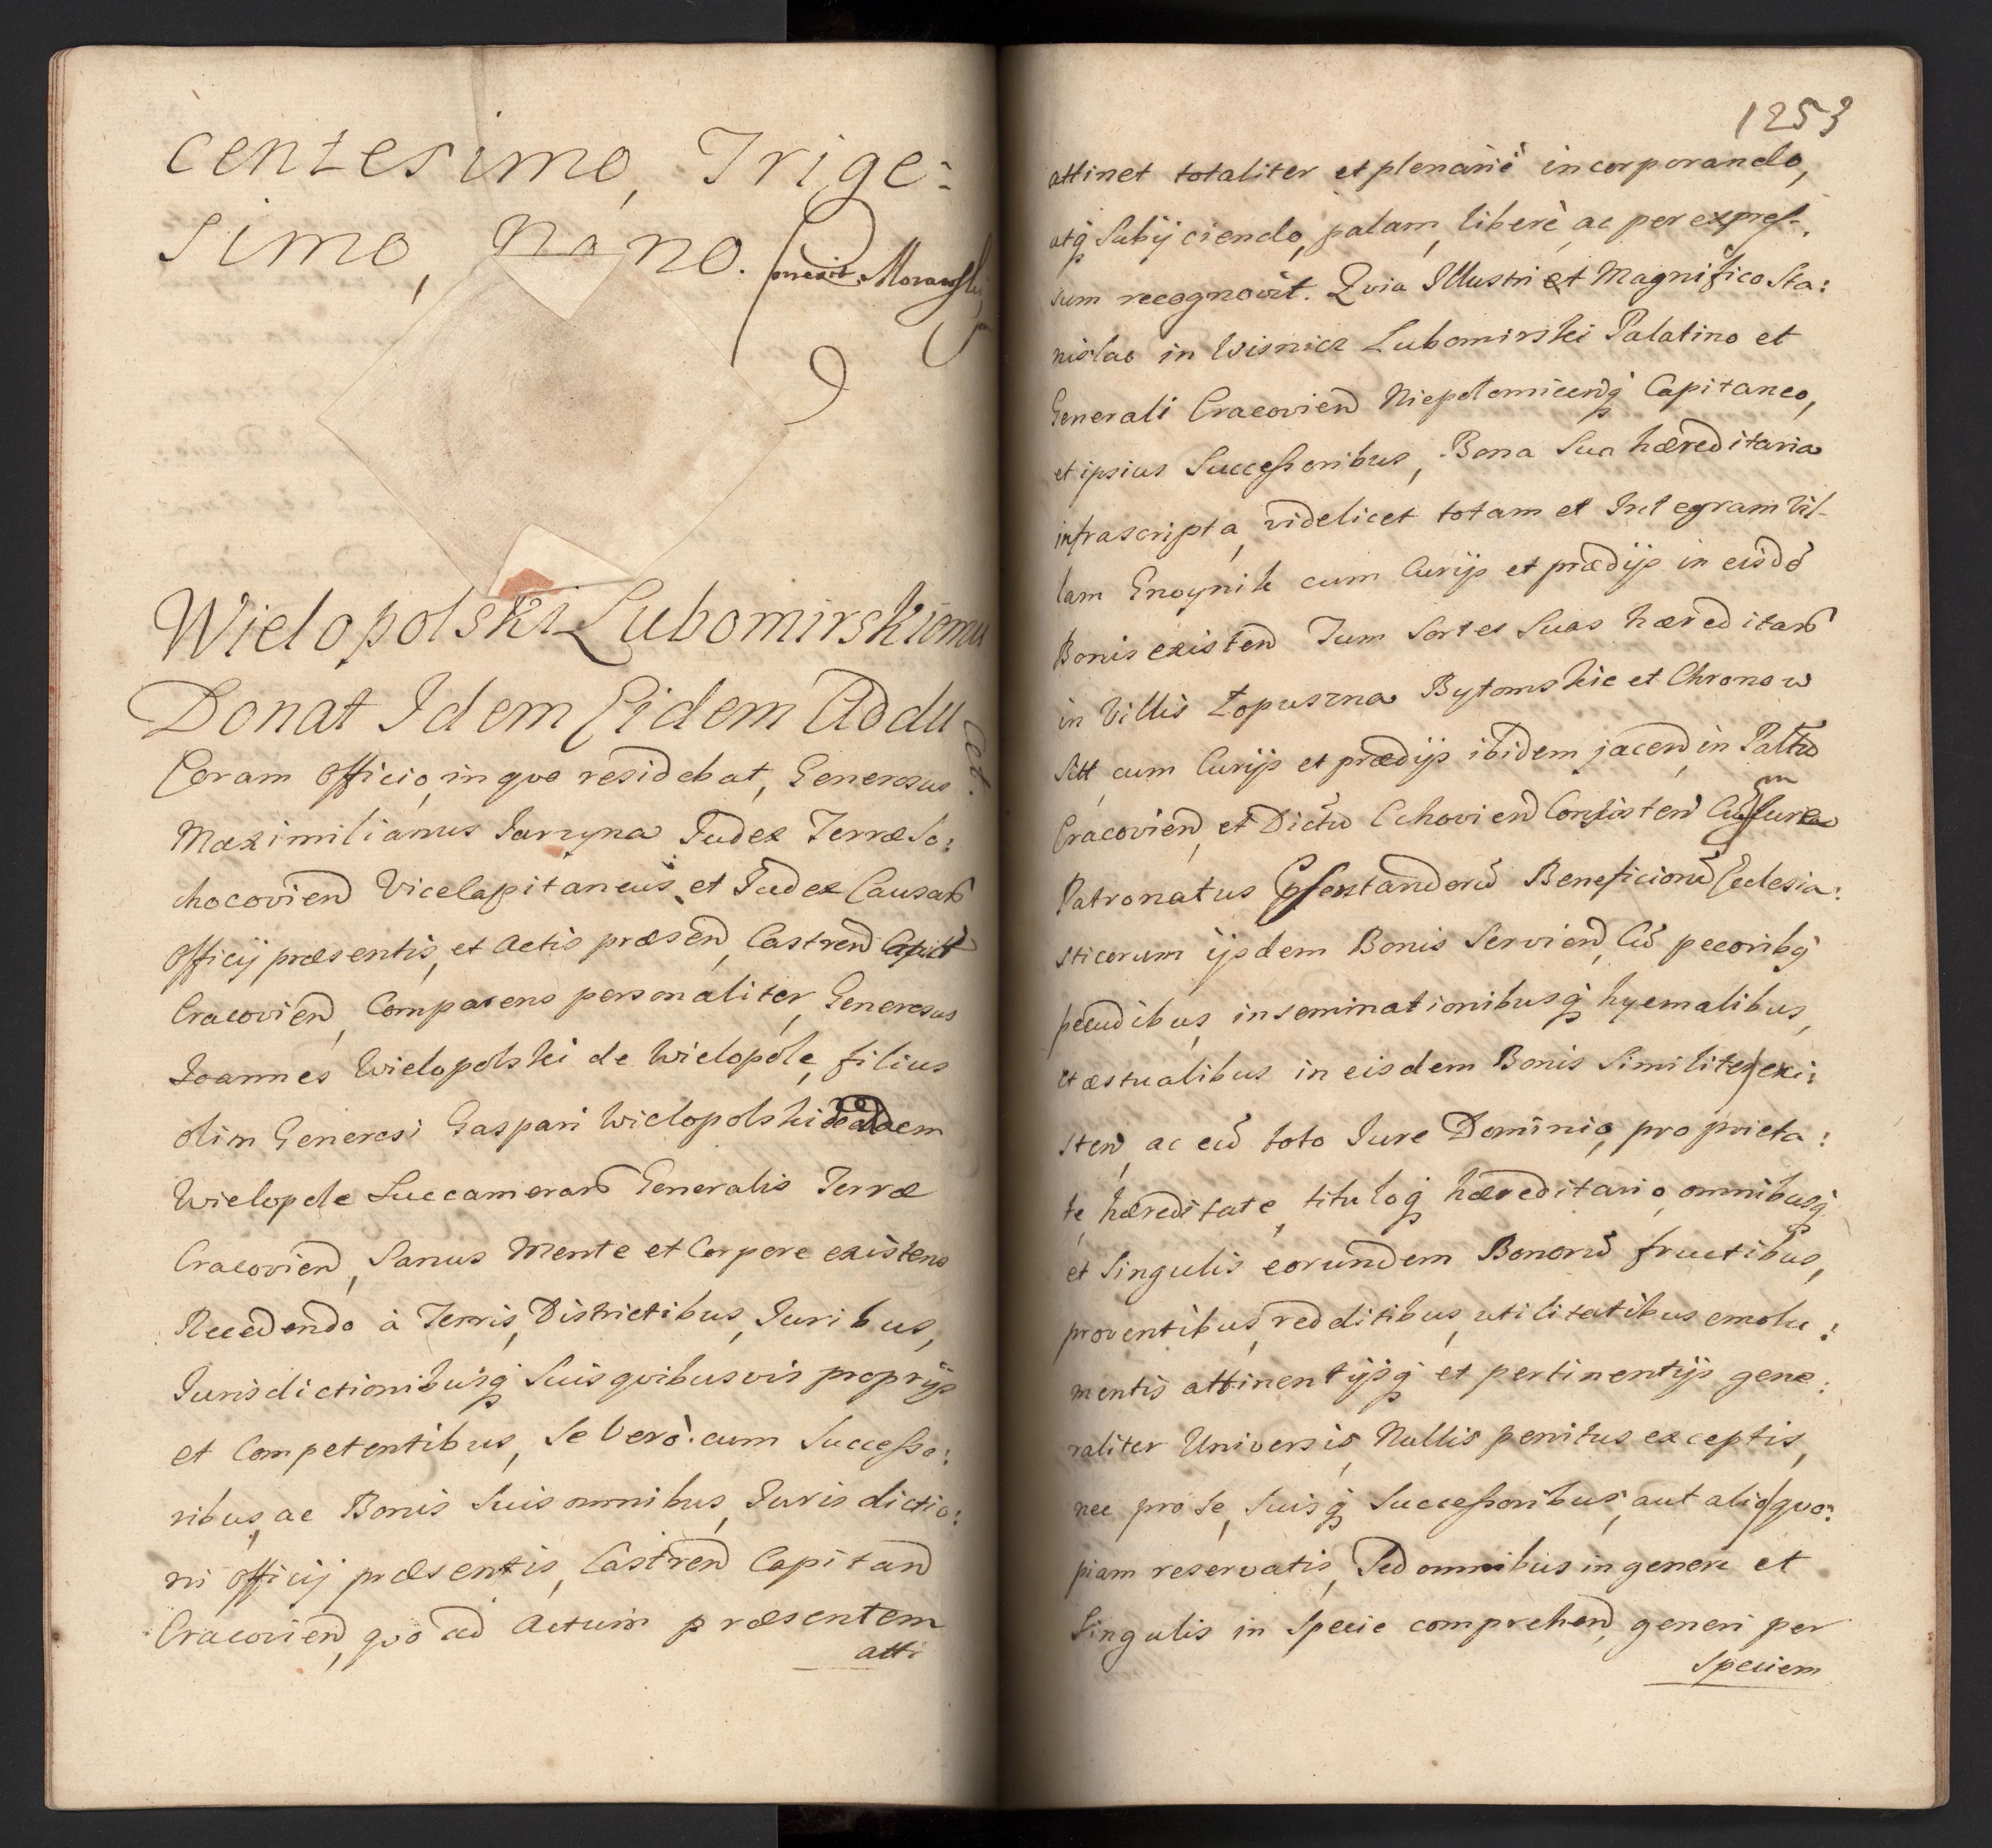 centesimo, Trige:
simo, Nono.
Wielopolski Lubomirskiomu
Donat Idem Eidem Addu
cet.
Coram officio, in quo residebat, Generosus
Maximilianus Jarzyna Judex Terræ So:
chocovien̄ ViceCapitaneus et Judex Causar̄
officij præsentis, et Actis præsen̄, Castren̄ Capitt
Cracovien̄, Comparens personaliter, Generosus
Joannes Wielopolski de Wielopole, filius
olim Generosi Gaspari Wielopolski de eadem
Wielopole Succamerar̄ Generalis Terræ
Cracovien̄, Sanus Mente et Corpore existens
Recedendo à Terris, Districtibus, Juribus,
Jurisdictionibusq̃ Suis quibusvis proprijs
et Competentibus, Se Verò cum Successo:
ribus, ac Bonis Suis omnibus, Jurisdictio:
ni officij præsentis, Castren̄ Capitan̄
Cracovien̄, quo ad Actum præsentem
atti
1253
attinet totaliter et plenariè incorporando,
atq̃ Subijciendo, palam, liberè ac per expres-
sum recognovit. Quia Illustri et Magnifico Sta:
nislao in Wisnicz Lubomirski Palatino et
Generali Cracovien̄ Niepołomicenq̃ Capitaneo,
et ipsius Successoribus, Bona Sua hæreditaria
infrascripta, videlicet totam et Integram Vil-
lam Gnoynik cum Curijs et prædijs in eisdē
Bonis existen̄ Tum Sortes Suas hæreditar̄
in Villis Łopuszna Bytomskie et Chronow
Sitt, cum Curijs et prædijs ibidem jacen̄, in Paltu
Cracovien̄, et Dictu Cchovien̄ Consisten̄ Cum Jure
Patronatus Psentandorū Beneficiorū Ecclesia:
sticorum ijsdem Bonis Servien̄, Cū pecoribq̃
pecudibus, inseminationibusq̃ hyemalibus,
et æstualibus in eisdem Bonis Similiter exi:
sten̄, ac cū toto Jure Dominio, proprieta:
te hæreditate, tituloq̃ hæreditario, omnibusq̃
et Singulis eorundem Bonorū fructibus,
proventibus, redditibus, utilitatibus emolu:
mentis attinentijsq̃ et pertinentijs gene:
raliter Universis, Nullis penitus exceptis,
nec pro Se, Suisq̃ Successoribus, aut alio quo:
piam reservatis, Sed omnibus in genere et
Singulis in Specie comprehen̄, generi per
Speciem